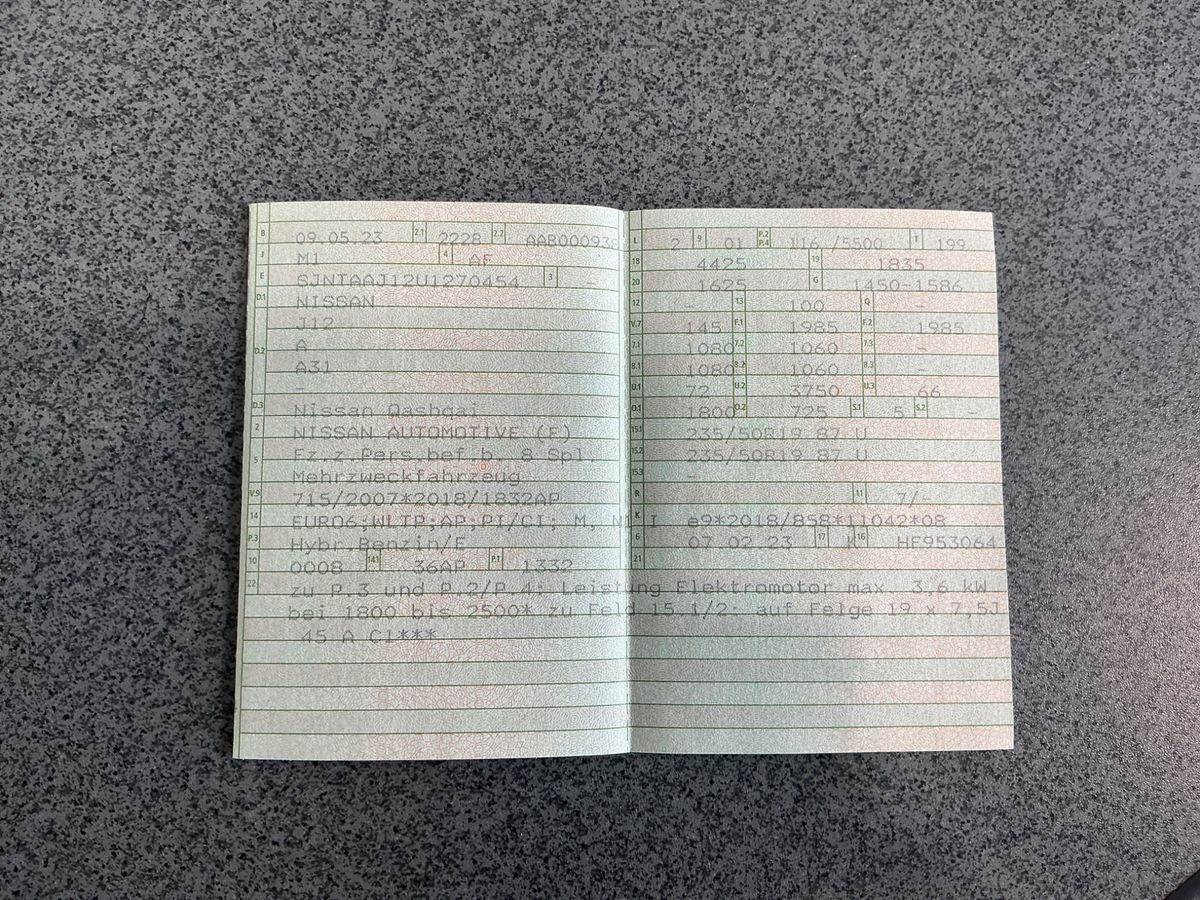 B 09.05.23 2.1 2228 2.2 AAB000938
J M1 4 AF
E SJNTAAJ12U1270454 3 -
D.1 NISSAN
J12
D.2 A
A31
-
D.3 Nissan Qashqai
2 NISSAN AUTOMOTIVE (F)
5 Fz.z.Pers.bef.b. 8 Spl.
Mehrzweckfahrzeug
V.9 715/2007*2018/1832AP
14 EURO6;WLTP;AP;PI/CI; M, N1 I
P.3 Hybr.Benzin/E
10 0008 14.1 36AP P.1 1332
L 2 9 01 P.2 P.4 116 /5500 T 199
18 4425 19 1835
20 1625 G 1450-1586
12 - 13 100 Q -
V.7 145 F.1 1985 F.2 1985
7.1 1080 7.2 1060 7.3 -
8.1 1080 8.2 1060 8.3 -
U.1 72 U.2 3750 U.3 66
O.1 1800 O.2 725 S.1 5 S.2 -
15.1 235/50R19 87 U
15.2 235/50R19 87 U
15.3 -
R 11 7/-
K e9*2018/858*11042*08
6 07.02.23 17 K 16 HF953064
21
22 zu P.3 und P.2/P.4: Leistung Elektromotor max. 3,6 kW
bei 1800 bis 2500* zu Feld 15.1/2: auf Felge 19 x 7,5J
45 A C1***